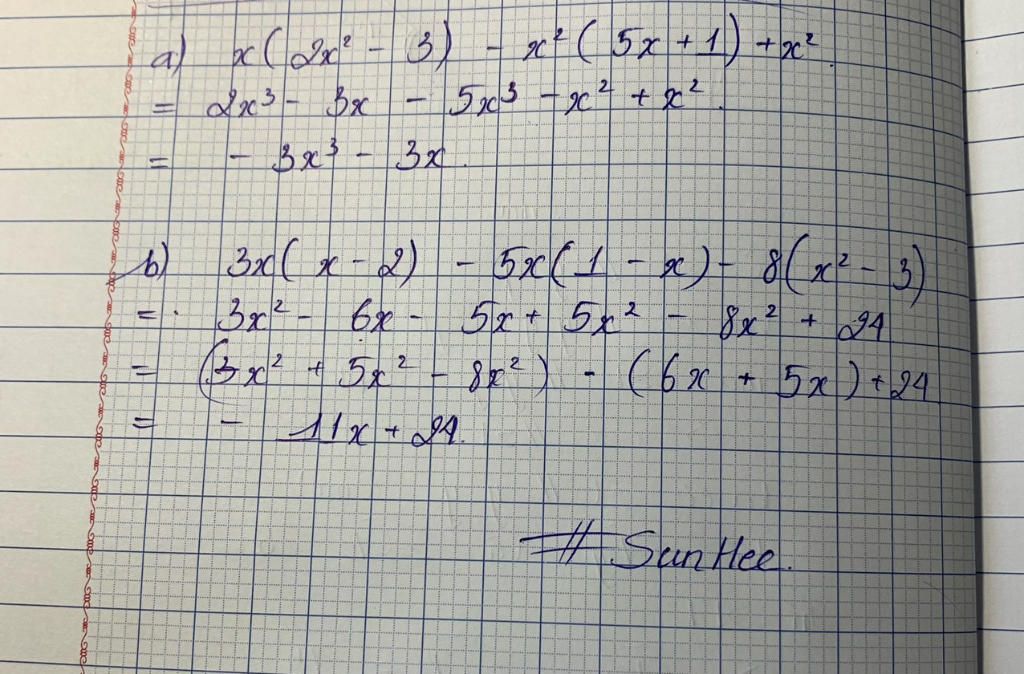 a) x(2x² - 3) - x²(5x + 1) + x².
= 2x³ - 3x - 5x³ - x² + x².
= - 3x³ - 3x.
b) 3x(x - 2) - 5x(1 - x) - 8(x² - 3)
= 3x² - 6x - 5x + 5x² - 8x² + 24
= (3x² + 5x² - 8x²) - (6x + 5x) + 24
= - 11x + 24.
# SunHee.